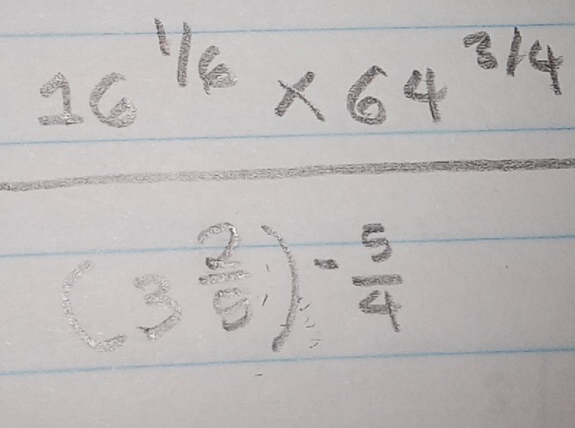 16^1/6 × 64^3/4
(3 2/8)^-5/4